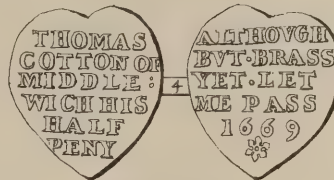 THOMAS
COTTON OF
MIDDLE:
WICH HIS
HALF
PENY
4
ALTHOVGH
BVT·BRASS
YET·LET
ME PASS
1669